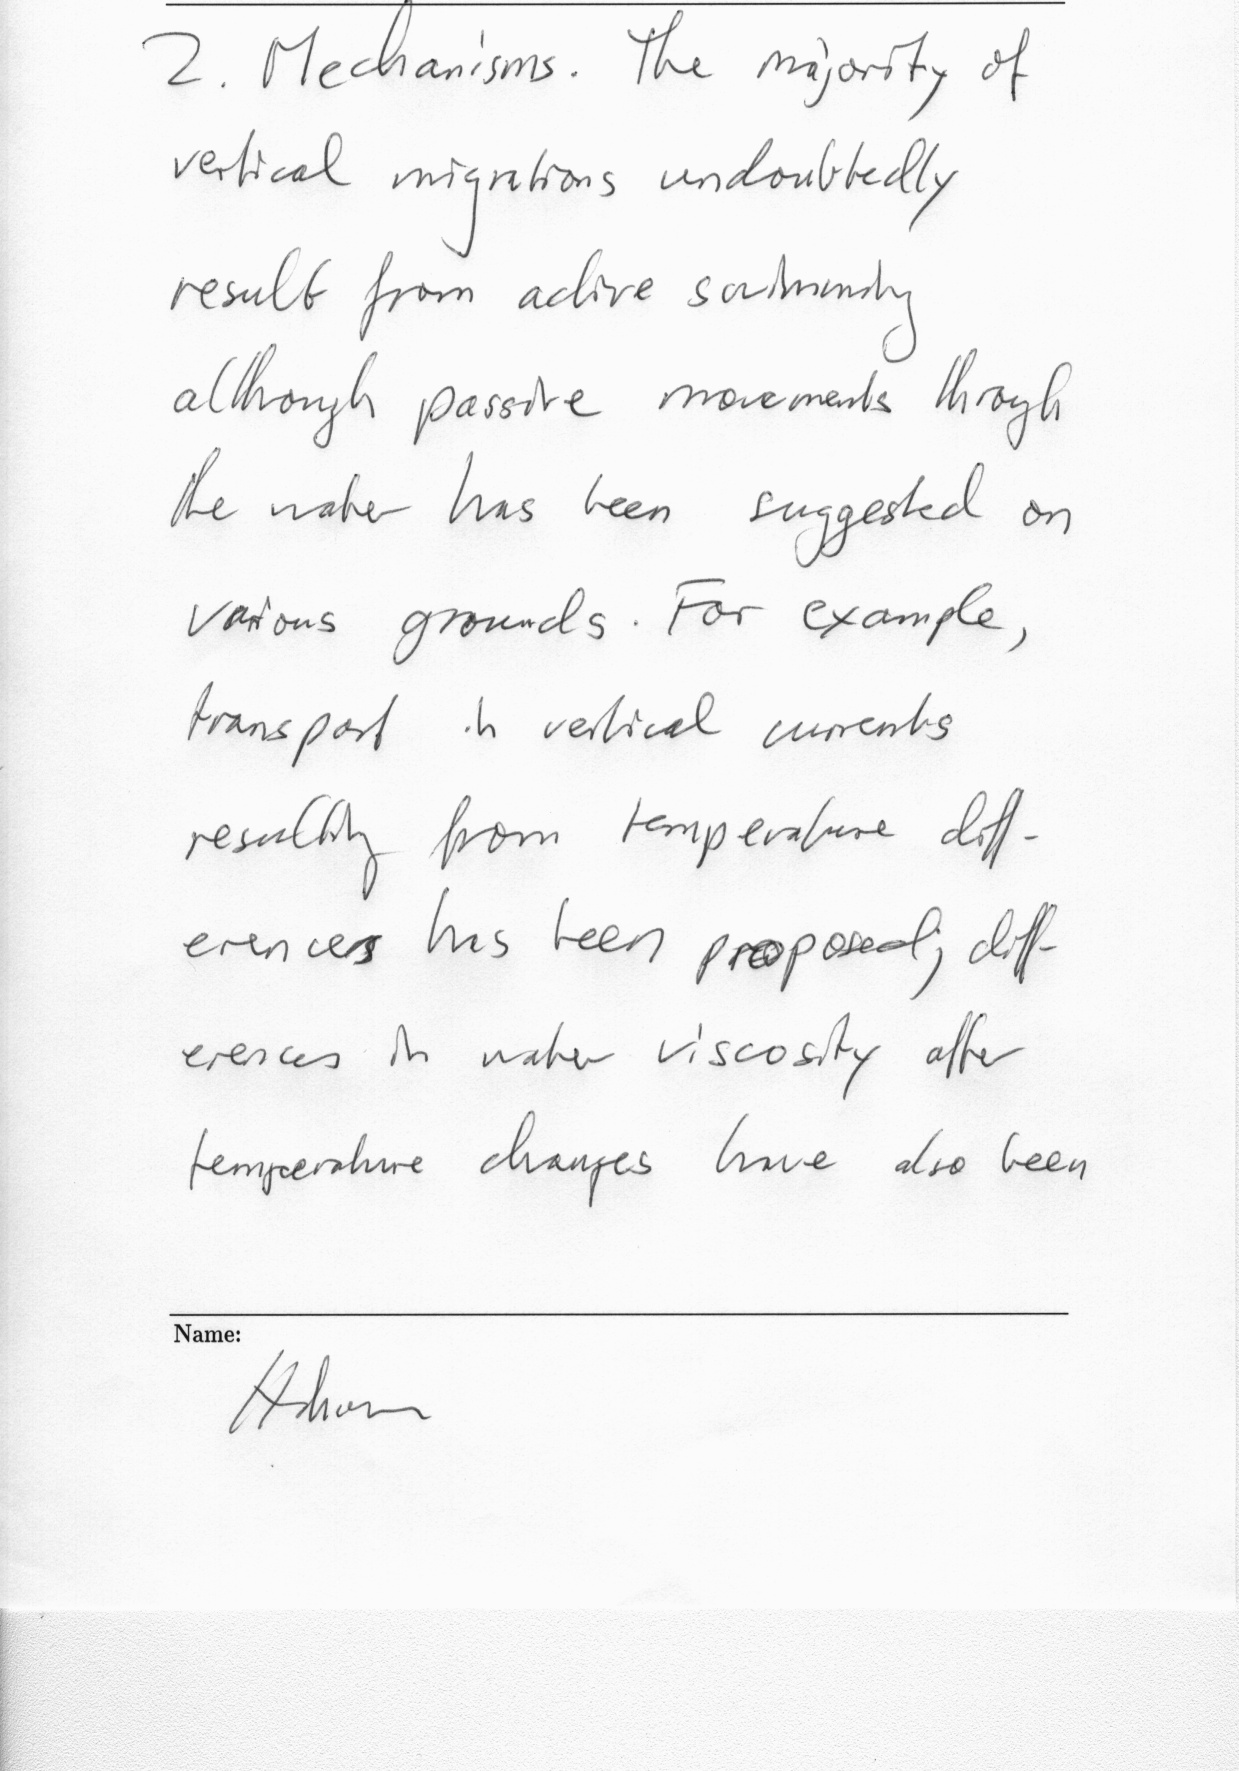 2. Mechanisms. The majority of
vertical migrations undoubtedly
result from active swimming
although passive movements through
the water has been suggested on
various grounds. For example,
transport in vertical currents
resulting from temperature diff-
erences has been proposed; diff-
erences in water viscosity after
temperature changes have also been
Name: